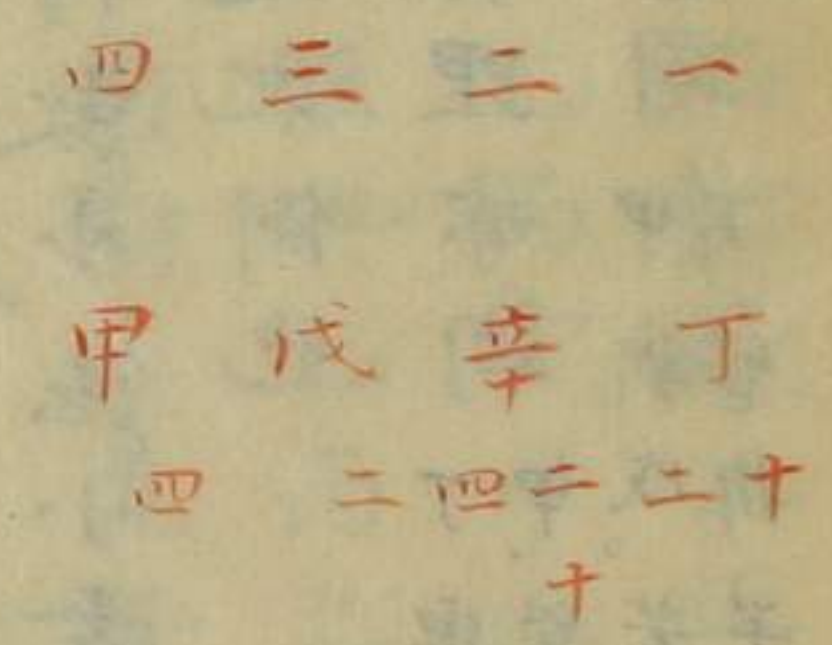 一丁十二
二辛二十四
三戊二
四甲四